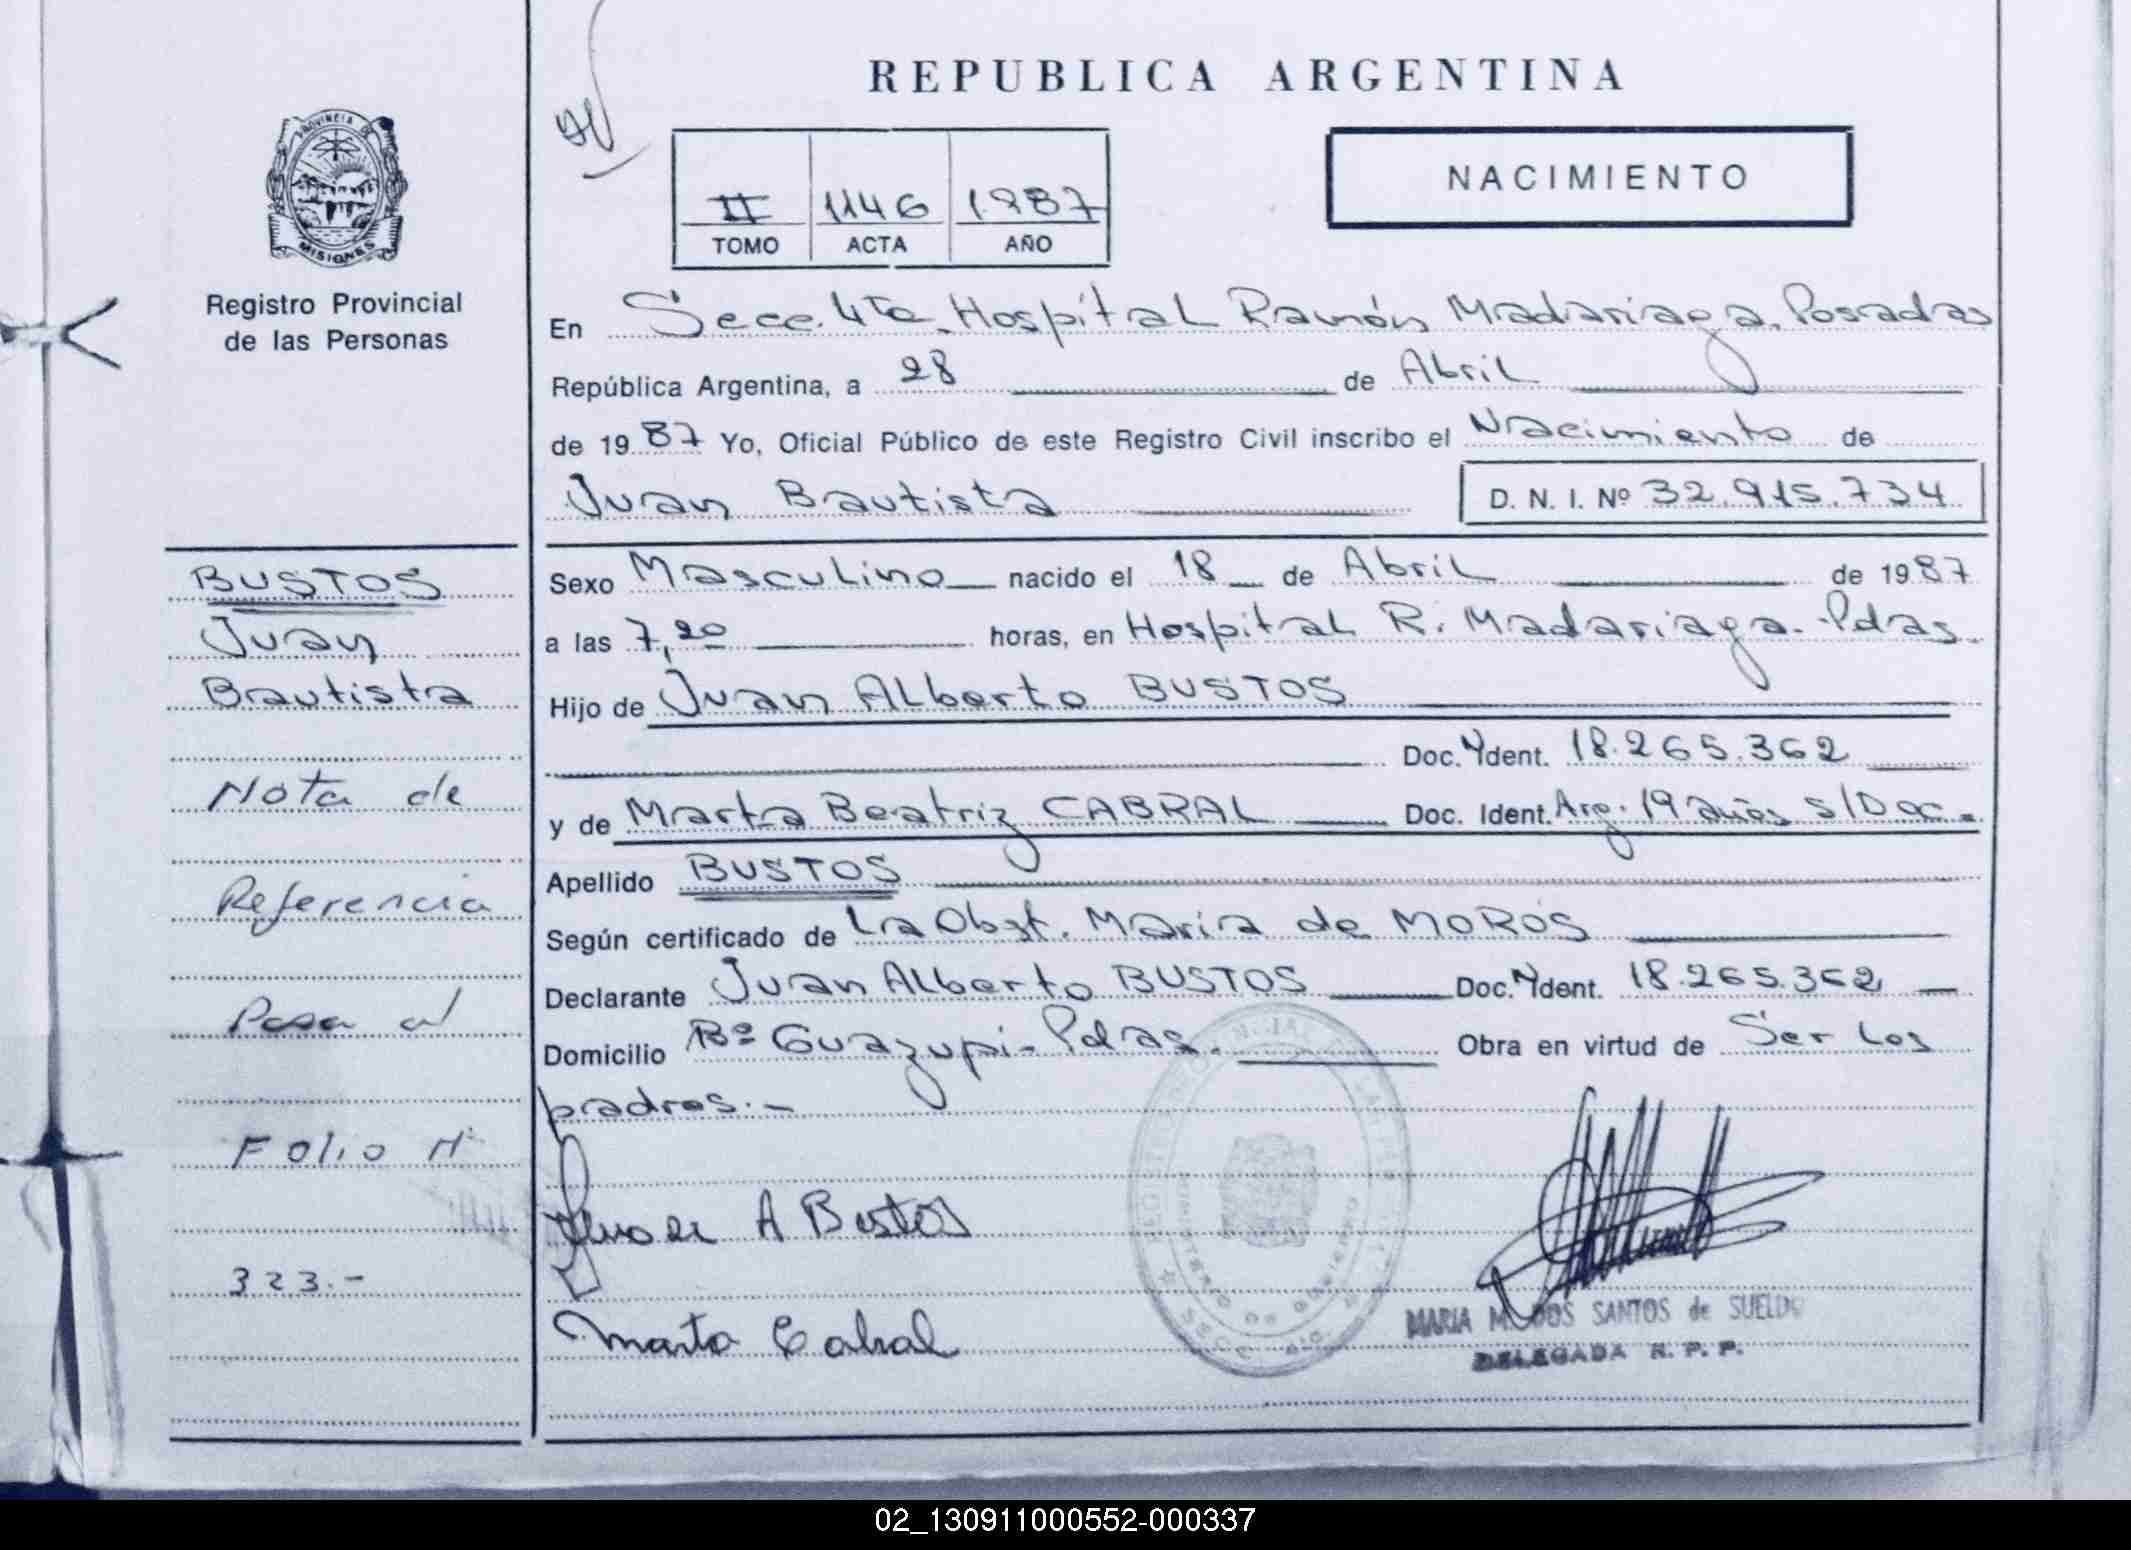 REPUBLICA ARGENTINA
PROVINCIA DE
MISIONES
Registro Provincial
de las Personas
II 1146 1987
TOMO ACTA AÑO
NACIMIENTO
En Secc. 4ta. Hospital Ramón Madariaga. Posadas
República Argentina, a 28 de Abril
de 1987 Yo, Oficial Público de este Registro Civil inscribo el Nacimiento de
Juan Bautista D. N. I. Nº 32.915.734
Sexo Masculino nacido el 18 de Abril de 1987
a las 7,20 horas, en Hospital R. Madariaga. Pdas.
Hijo de Juan Alberto BUSTOS
Doc. Ydent. 18.265.362
y de Marta Beatriz CABRAL Doc. Ident. Arg. 19 años s/Doc.
Apellido BUSTOS
Según certificado de La Obst. María de MORÓS
Declarante Juan Alberto BUSTOS Doc. Ydent. 18.265.362
Domicilio Bº Guazupi - Pdas. Obra en virtud de Ser los
padres.-
BUSTOS
Juan
Bautista
Nota de
Referencia
Pasa al
Folio Nº
323.-
A Bustos
Marta Cabral
MARIA M. DOS SANTOS de SUELDO
DELEGADA R. P. P.
02_130911000552-000337